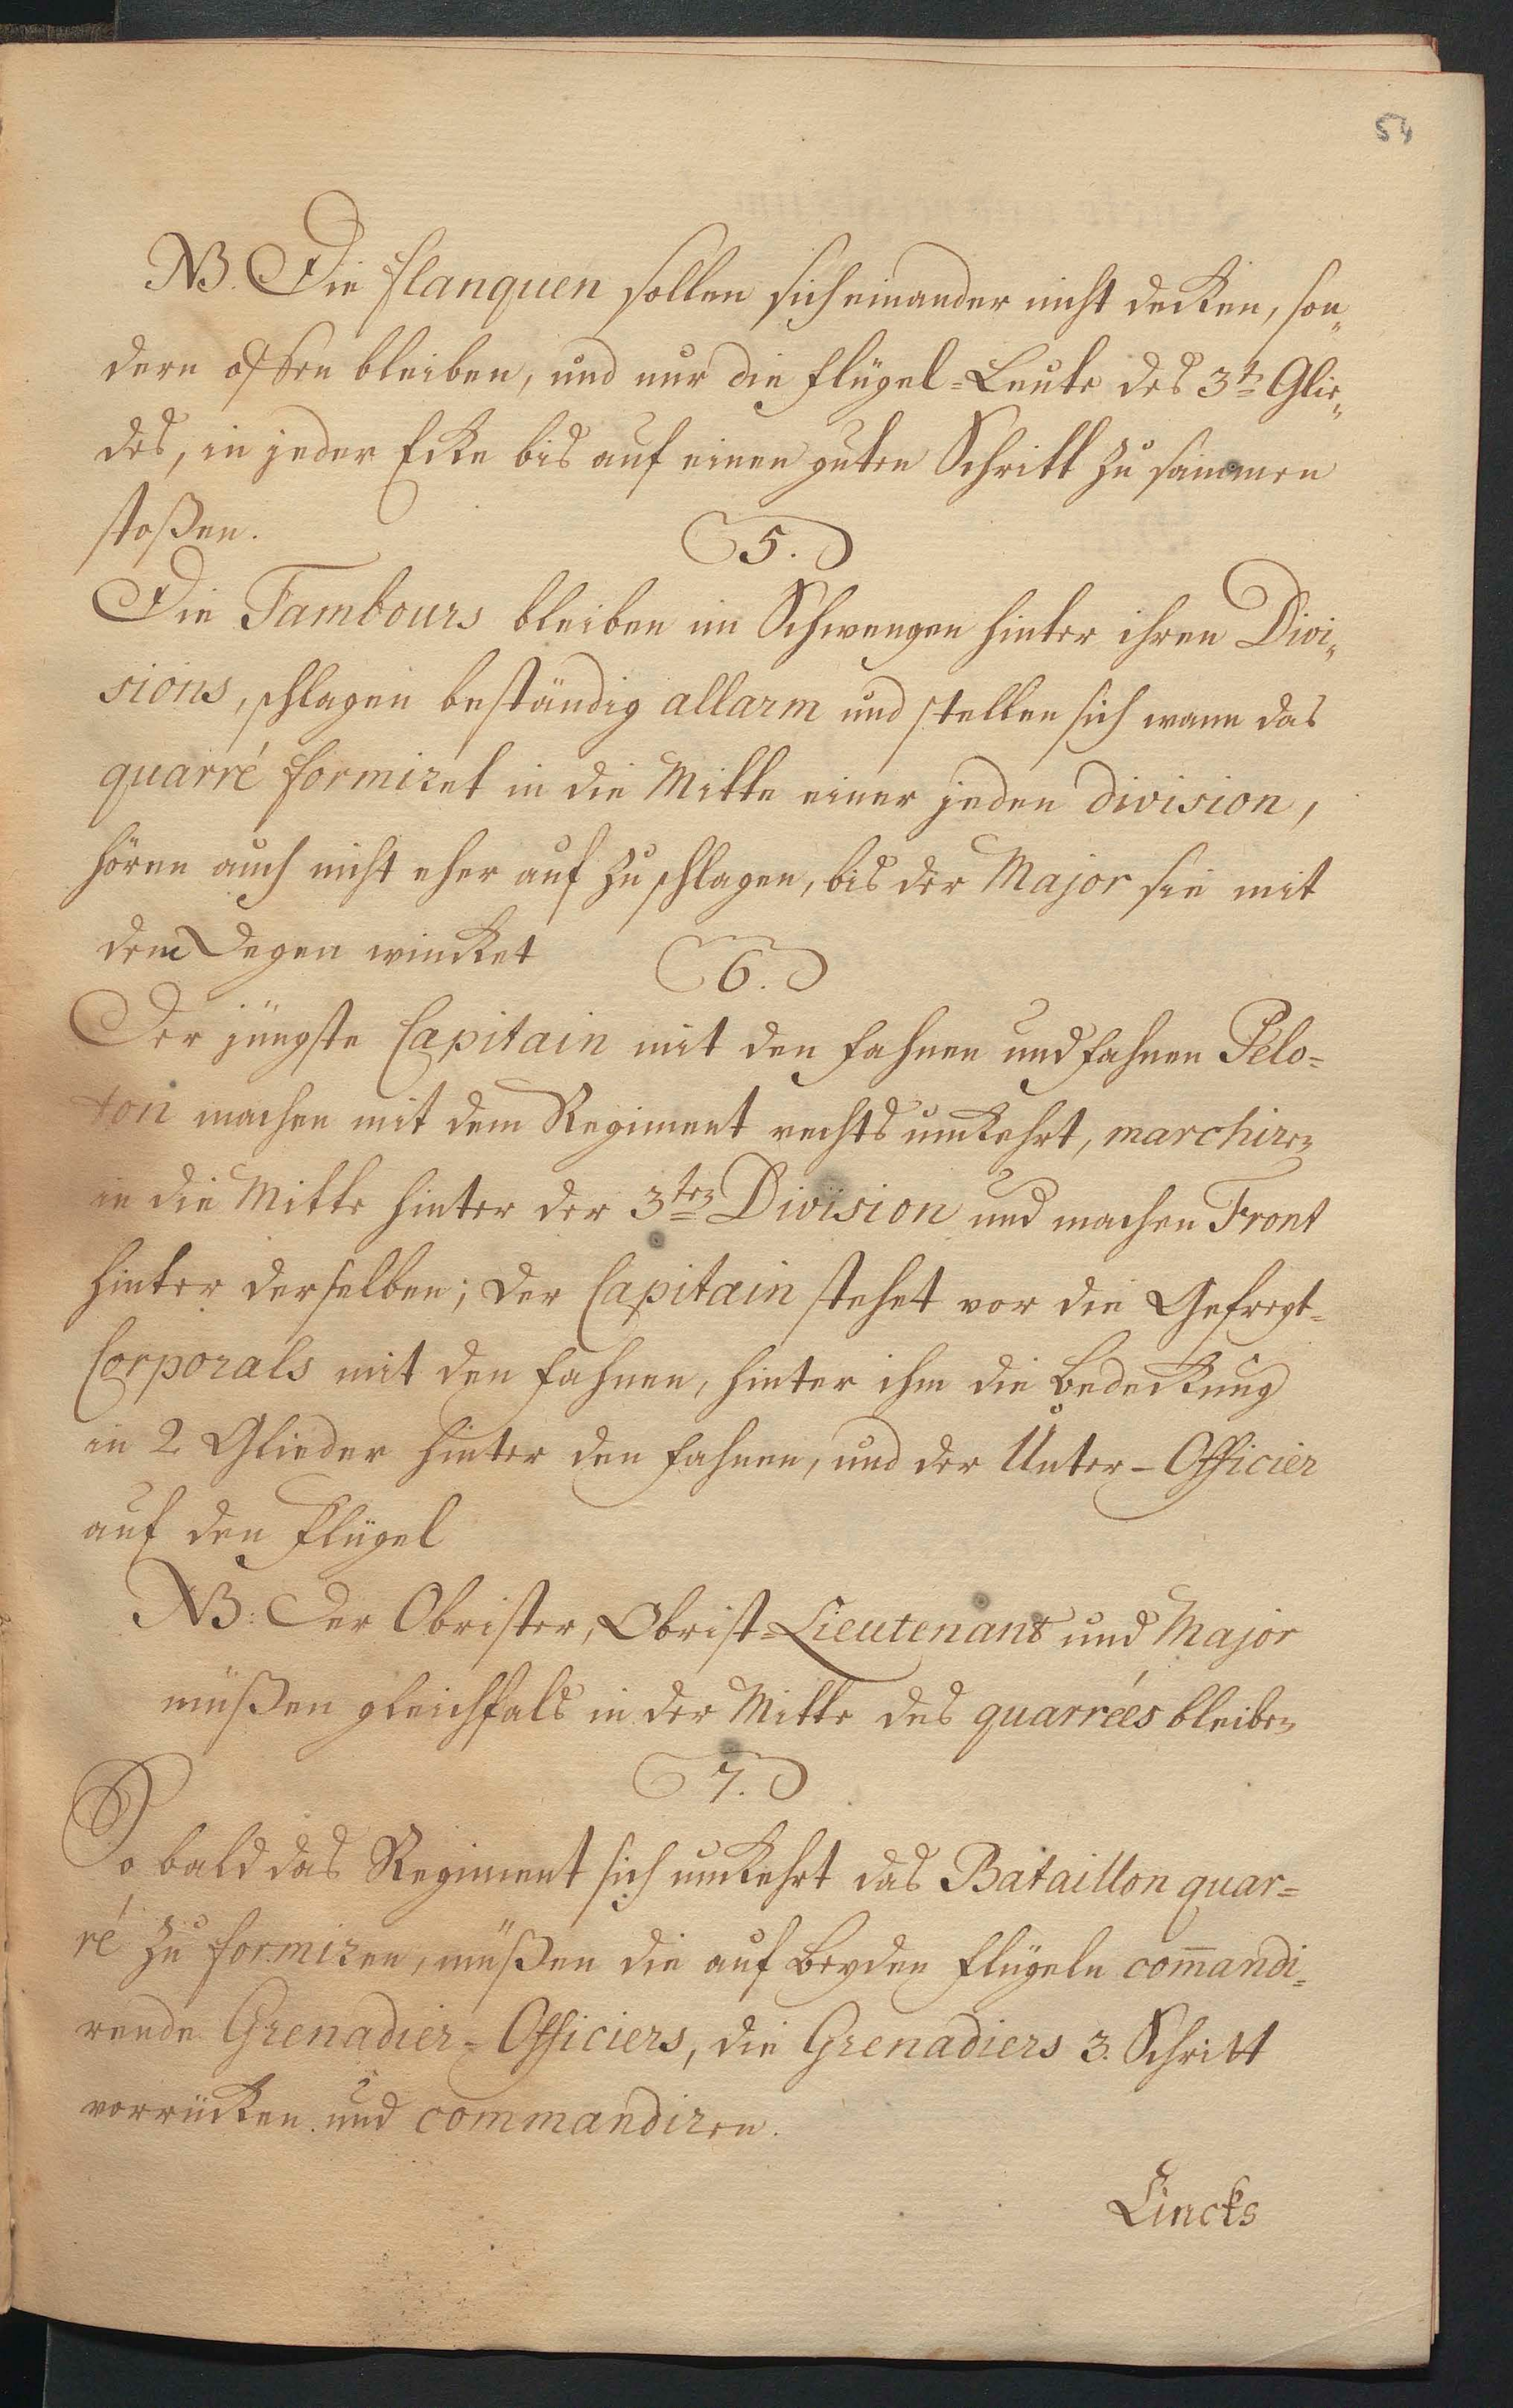 54
NB. Die flanquen sollen sich einander nicht decken, son„
dern offen bleiben, und nur die flügel-Leute des 3t. Glie„
des, in jeder Ecke bis auf einen guten Schritt zu sammen
stoßen.
5.
Die Tambours bleiben im Schwengen hinter ihren Divi„
sions, schlagen beständig allarm und stellen sich wann das
quarré formiret in die Mitte einer jeden division,
hören auch nicht eher auf zu schlagen, bis der Major sie mit
dem Degen wincket
6.
Der jüngste Capitain mit den fahnen und fahnen Pelo=
ton machen mit dem Regiment rechts umkehrt, marchiren
in die Mitte hinter der 3ten Division und machen Front
hinter derselben; der Capitain stehet vor die Gefreyt=
Corporals mit den fahnen, hinter ihm die bedeckung
in 2 Glieder hinter den fahnen, und der Unter-Officier
auf den flügel
NB: Der Obrister, Obrist=Lieutenant und Major
müßen gleichfals in der Mitte des quarrées bleiben
7.
So bald das Regiment sich umkehrt das Bataillon quar=
ré zu formiren, müßen die auf beyden flügeln com̄andi=
rende Grenadier=Officiers, die Grenadiers 3. Schritt
vorrücken und commandiren.
Lincks